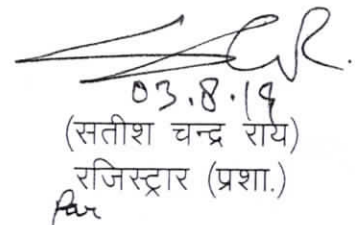 03.8.19
(सतीश चन्द्र राय)
रजिस्ट्रार (प्रशा.)